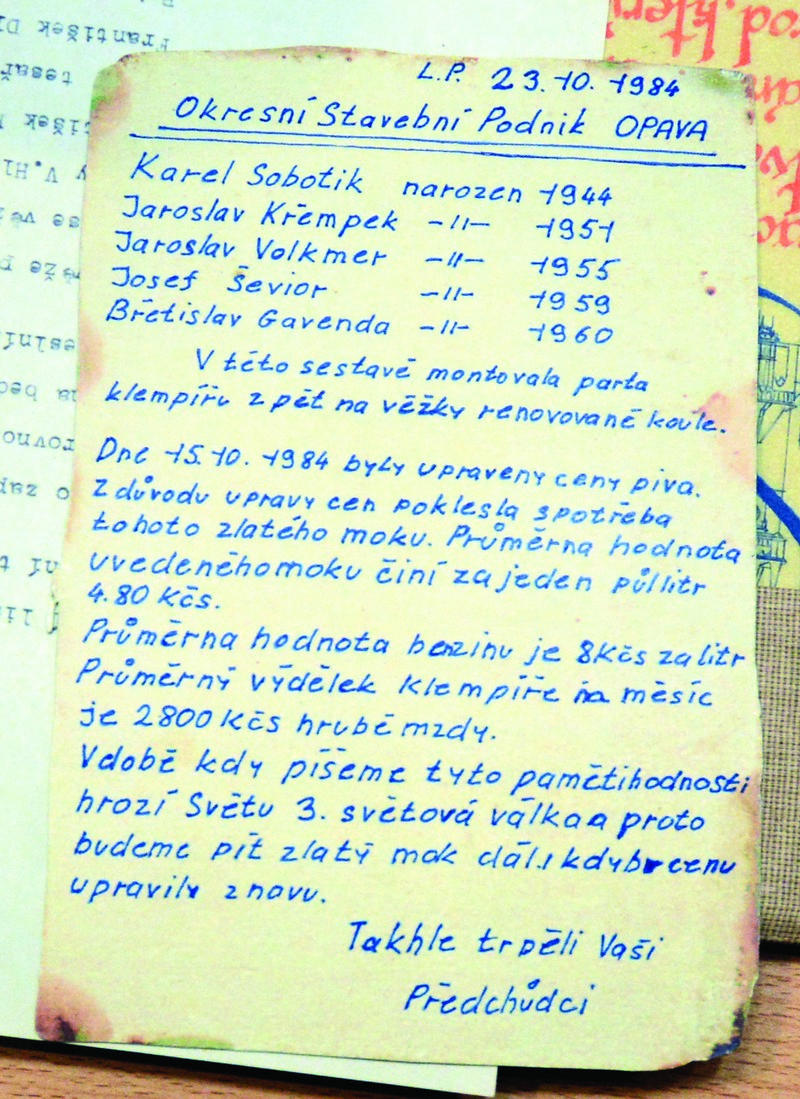 L.P. 23.10.1984
Okresní Stavební Podnik OPAVA
Karel Sobotik narozen 1944
Jaroslav Křempek -11- 1951
Jaroslav Volkmer -11- 1955
Josef Ševior -11- 1959
Břetislav Gavenda -11- 1960
V této sestavě montovala parta
klempířu zpět na věžky renovované koule.
Dne 15.10. 1984 byly upraveny ceny piva.
Z důvodu upravy cen poklesla spotřeba
tohoto zlatého moku. Průměrna hodnota
uvedeného moku činí za jeden půllitr
4.80 Kčs.
Průměrna hodnota benzinu je 8Kčs za litr
Průměrný výdělek klempíře na měsíc
je 2800 Kčs hrubé mzdy.
V době kdy píšeme tyto pamětihodnosti
hrozí Světu 3. světová válka a proto
budeme pít zlatý mok dál i kdyby cenu
upravily znovu.
Takhle trpěli Vaši
Předchůdci
František
tesař